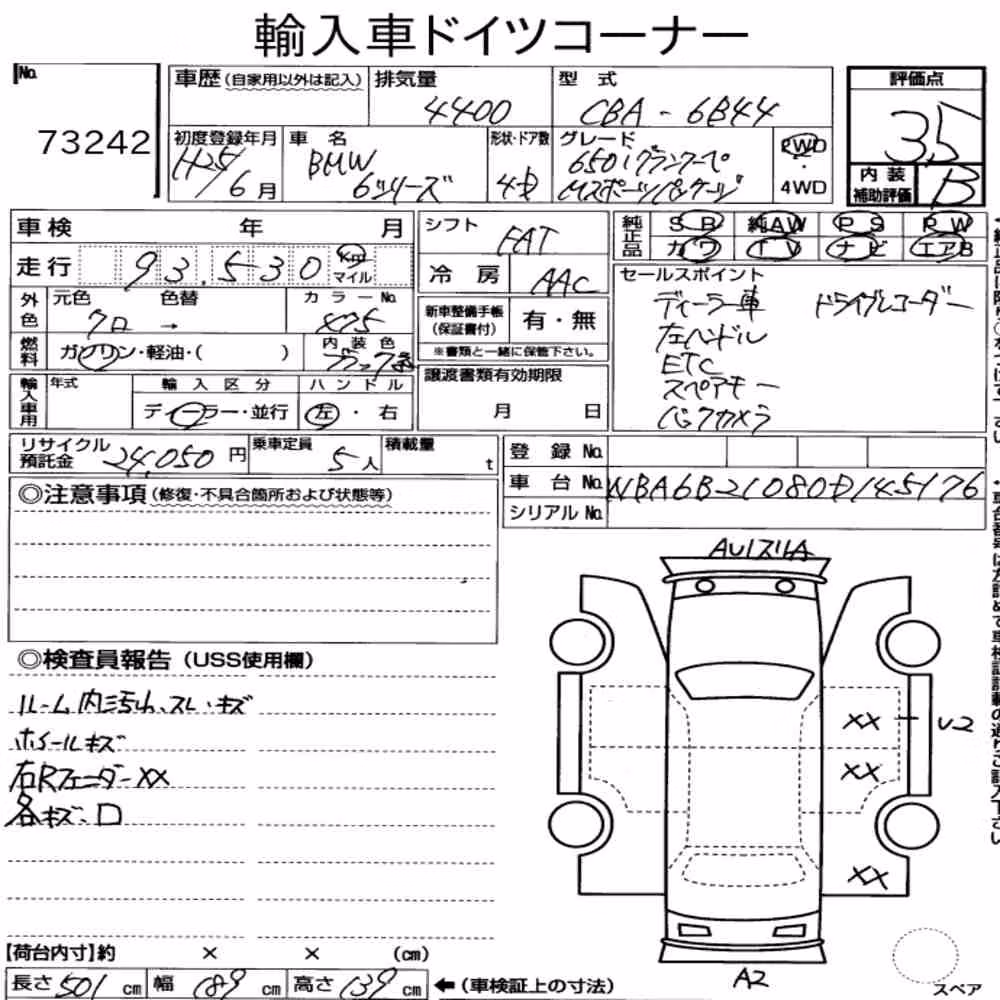 輸入車ドイツコーナー
No. 73242
車歴(自家用以外は記入) 排気量 4400 型式 CBA-6B44 評価点 3.5
初度登録年月 H25/6月 車名 BMW 6シリーズ 形状・ドア数 4D グレード 650iグランクーペ Mスポーツパッケージ RWD・4WD
内装補助評価 B
車検 年 月 シフト FAT 純正品 SR 純AW PS PW
カワ TV ナビ エアB
走行 93,530 km マイル 冷房 AAC
外色 元色 クロ → 色替 カラーNo. 475
新車整備手帳(保証書付) 有・無
※書類と一緒に保管下さい。
燃料 ガソリン・軽油・( ) 内装色
輸入車用 年式 輸入区分 ディーラー・並行 ハンドル 左・右
譲渡書類有効期限 月 日
セールスポイント
ディーラー車 ドライブレコーダー
左ハンドル
ETC
スペアキー
バックカメラ
リサイクル預託金 24,050円 乗車定員 5人 積載量 t
登録No.
車台No. WBA6B21080D145176
シリアルNo.
◎注意事項(修復・不具合箇所および状態等)
◎検査員報告(USS使用欄)
ルーム内汚れ、スレ・キズ
ホイールキズ
右Rフェンダー XX
各キズ、凹
XX U2
XX
XX
A2
スペア
【荷台内寸】約 × × (cm)
長さ 501 cm 幅 189 cm 高さ 139 cm ←(車検証上の寸法)